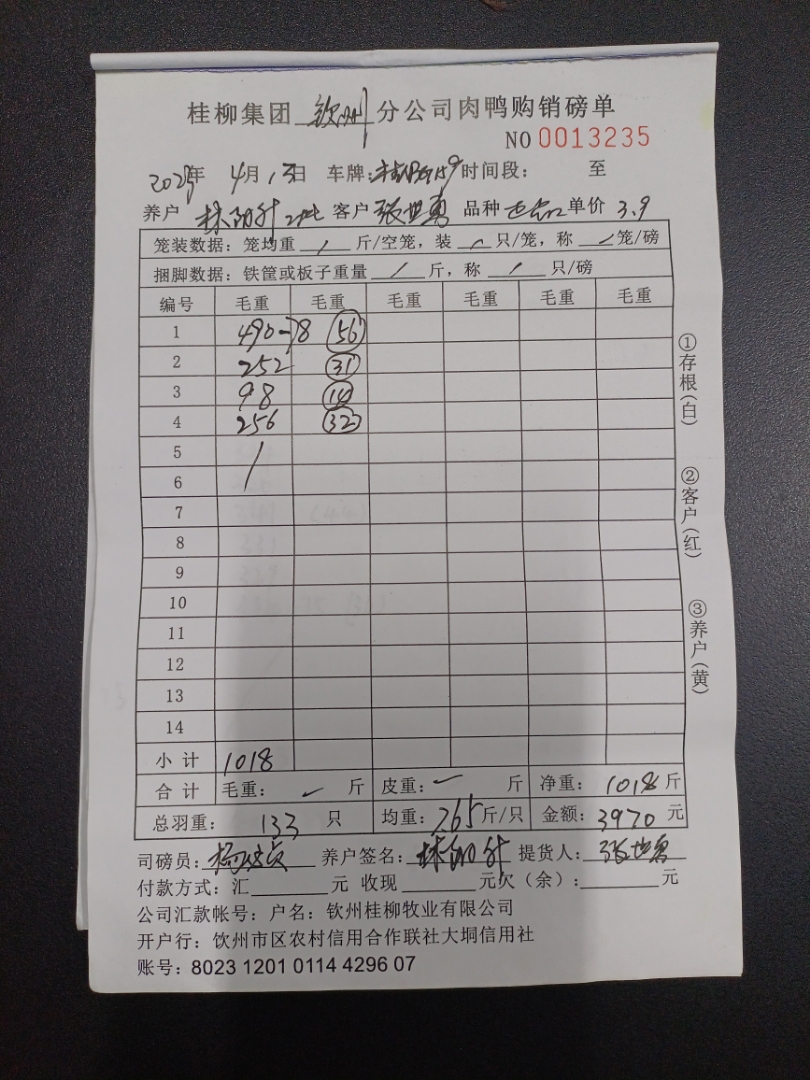 桂柳集团 钦州 分公司肉鸭购销磅单
NO 0013235
2025年 4月13日 车牌: 时间段: 至
养户 林 客户 张世勇 品种 单价 3.9
笼装数据: 笼均重 / 斤/空笼, 装 / 只/笼, 称 / 笼/磅
捆脚数据: 铁筐或板子重量 / 斤, 称 / 只/磅
编号 毛重 毛重 毛重 毛重 毛重 毛重
1 490-78 56
2 252 31
3 98 14
4 256 32
5
6
7
8
9
10
11
12
13
14
小计 1018
合计 毛重: 斤 皮重: 斤 净重: 1018 斤
总羽重: 133 只 均重: 7.65 斤/只 金额: 3970 元
司磅员: 杨 养户签名: 林 提货人: 张世勇
付款方式: 汇 元 收现 元欠(余): 元
公司汇款帐号: 户名: 钦州桂柳牧业有限公司
开户行: 饮州市区农村信用合作联社大垌信用社
账号: 8023 1201 0114 4296 07
①存根(白)
②客户(红)
③养户(黄)